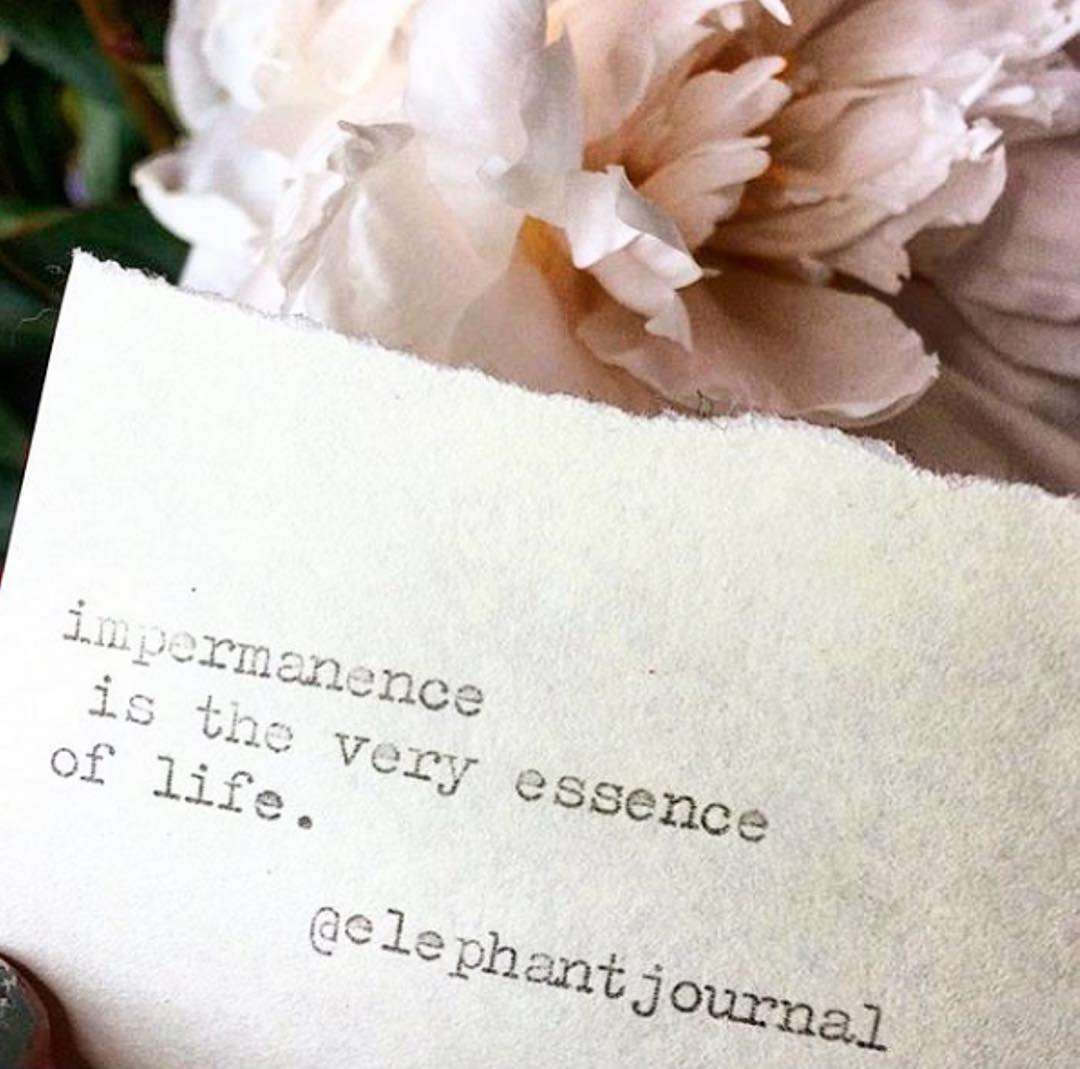 impermanence
is the very essence
of life.
@elephantjournal